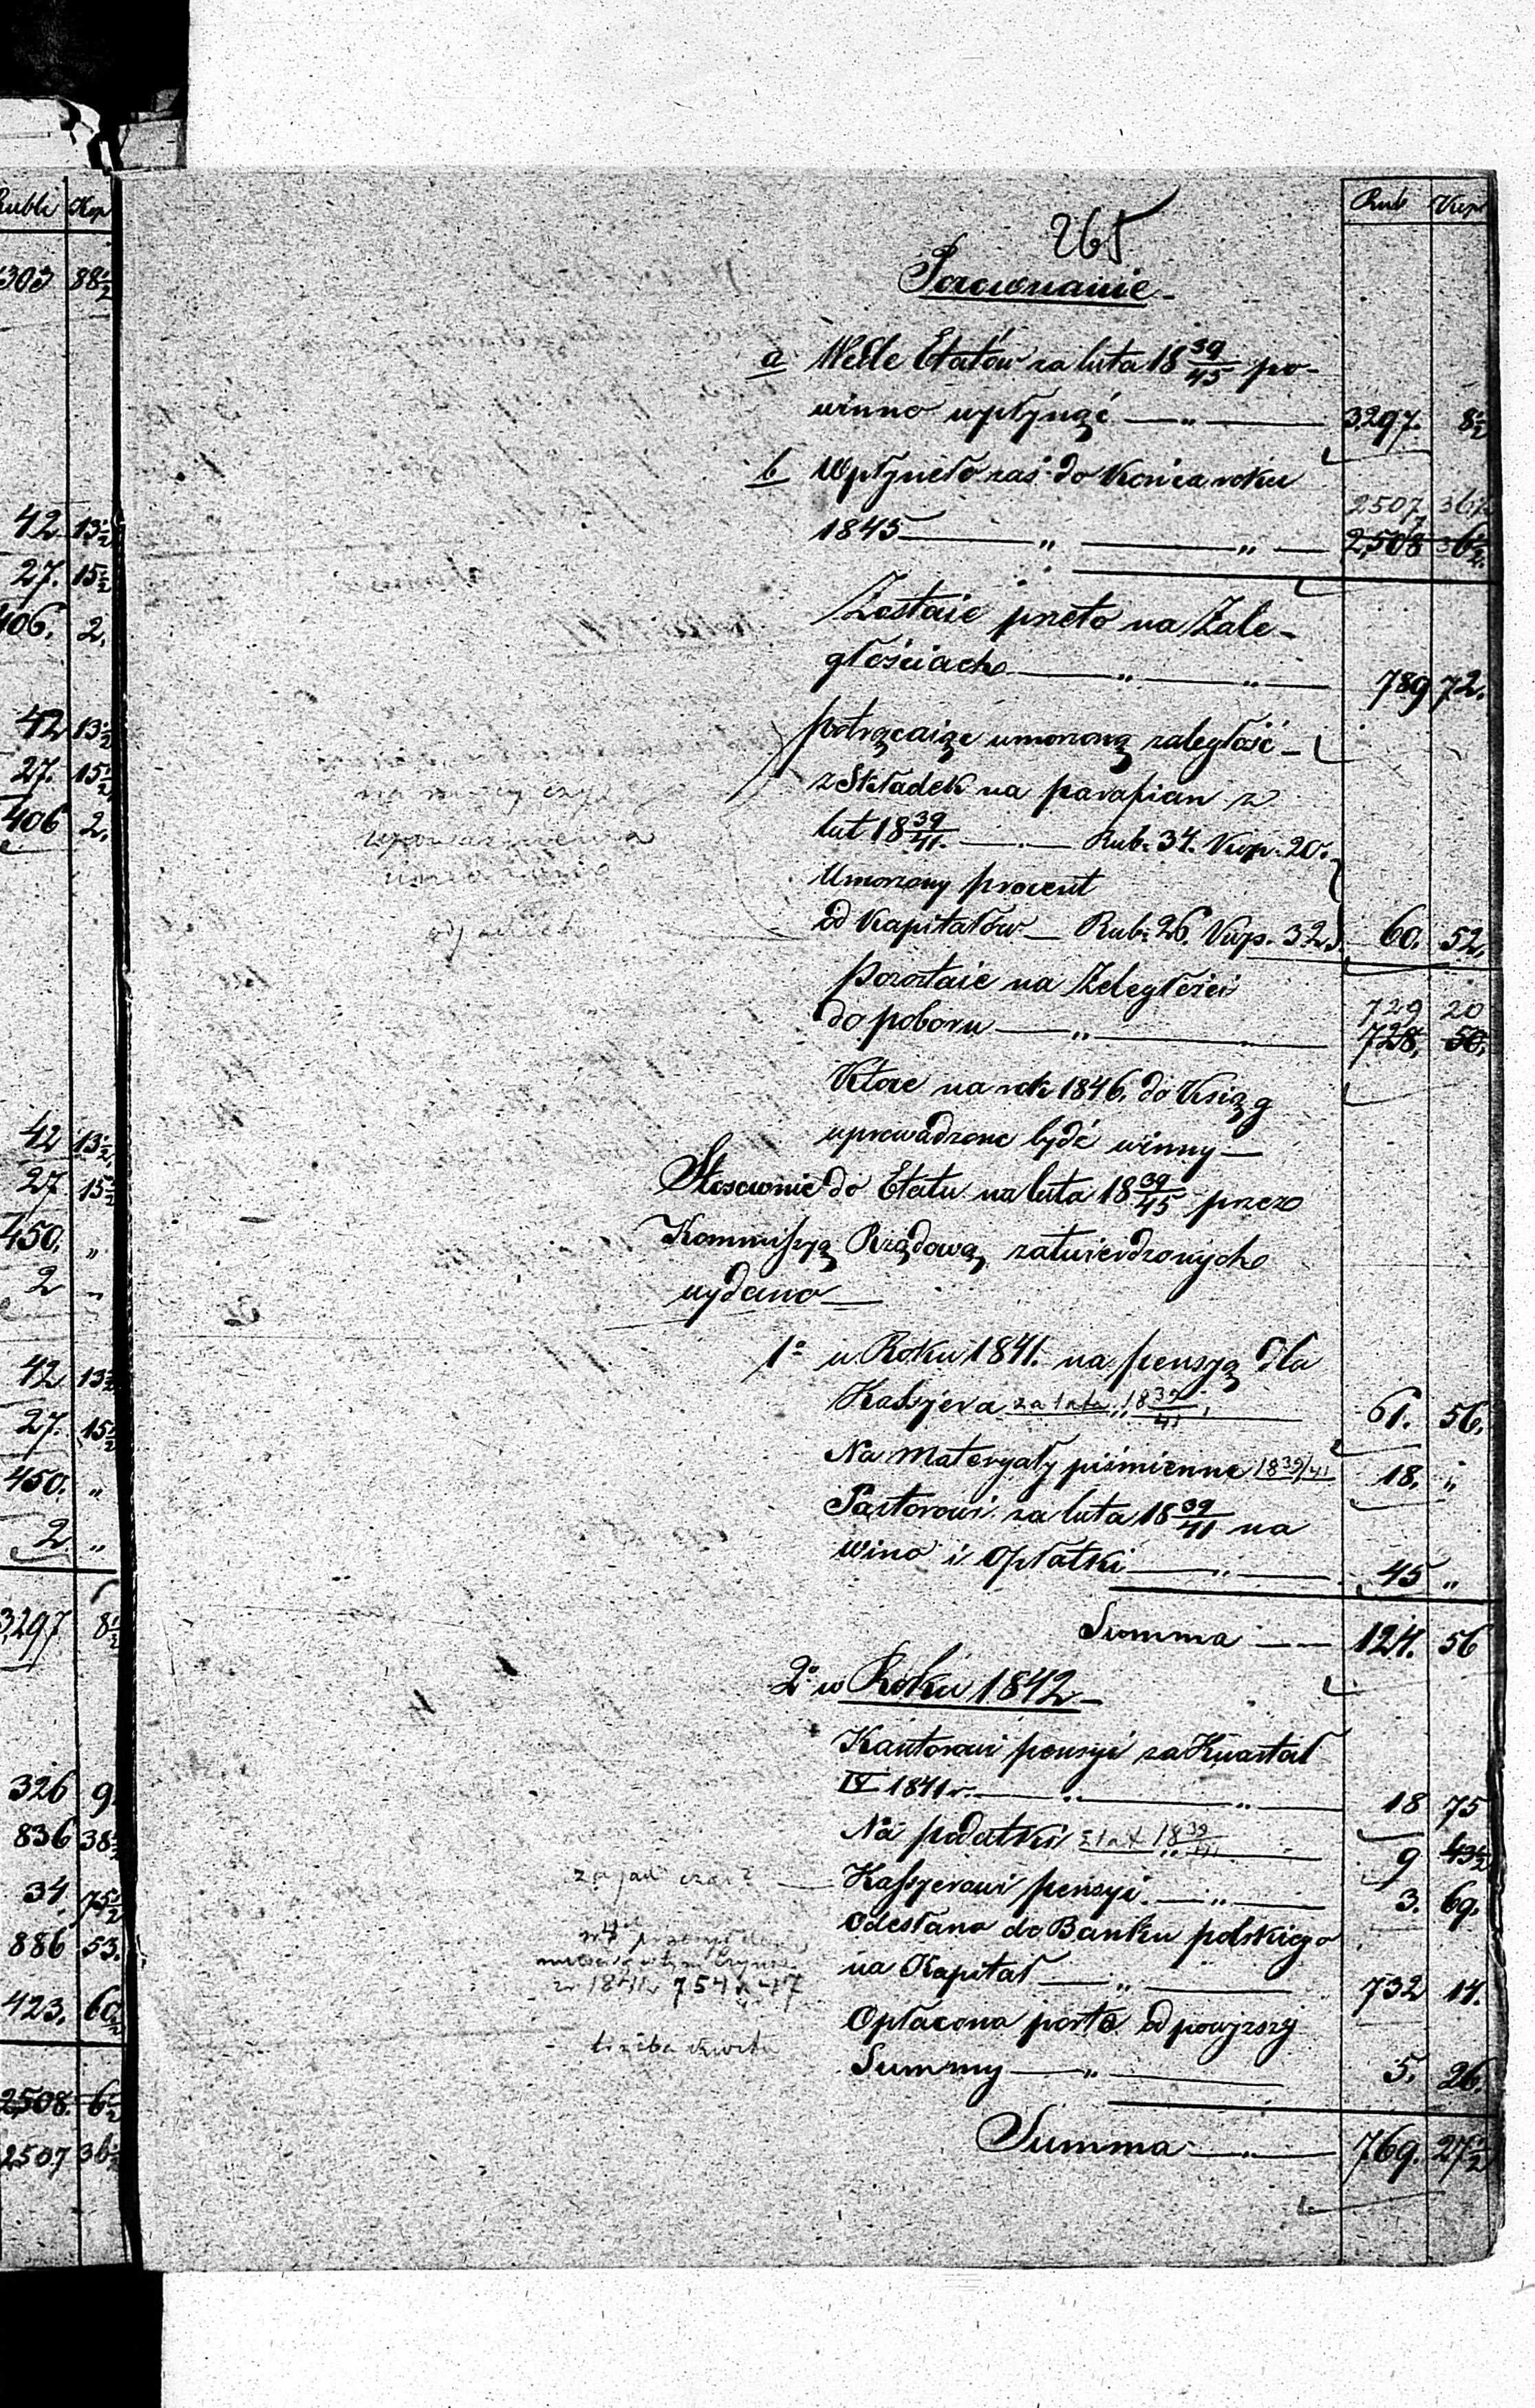 Rubli Kop
303 88½
42 13½
27. 15½
406. 2.
42 13½
27. 15½
406 2.
42 13½
27 15½
450. "
2 "
42 13½
27. 15½
450. "
2 "
3,297 8½
326 9.
836 38½
34. 75½
886 53.
423. 60½
2,508. 6½
2507 36½
Rub Kop
265
Porownanie
a Wedle Etatów za lata 18 39/45 po-
winno wpłynąć — " — 3,297. 8½
b Wpłyneło zaś do Końca roku
2507 36½
1845 — " — " — 2,508 36½
Zostaie przeto na Zale-
głościach — " — " — 789 72.
potrącaiąc umorzoną zaległość
z Składek na parafian z
lat 18 39/41. — Rub. 34. Kop. 20.
Umorzony procent
od Kapitałów — Rub. 26. Kop. 32. 60. 52.
na mocy czyj
upoważnienia
umorzenie
Pozostaie na Zaległości
729 20
do poboru — " — 728. 50.
Które na rok 1846. do Ksiąg
uprowadzone bydź winny —
Stosownie do Etatu na lata 18 39/45 przez
Kommissyą Rządową zatwierdzonych
wydano —
1° w Roku 1841. na pensyą dla
Kassyera za lata 18 39/41 61. 56.
Na Materyały piśmienne 18 39/41 18. "
Pastorowi za lata 18 39/41 na
wino i Opłatki — " — 45 "
Summa — 124. 56
2° w Roku 1842
Kantorowi pensyi za Kwartał
IV 1841 r. — " — " — 18 75
Na podatki z lat 18 39/41 9 43½
za jaki czas? — Kassyerowi pensyi — " — 3. 69.
Odesłano do Banku polskiego
na Kapitał — " — 732 14.
z 1841 r 754 r 47
Opłacono porto od powyzszey
liczba kwitu
Summy — " — 5. 26.
Summa — " — 769. 27½